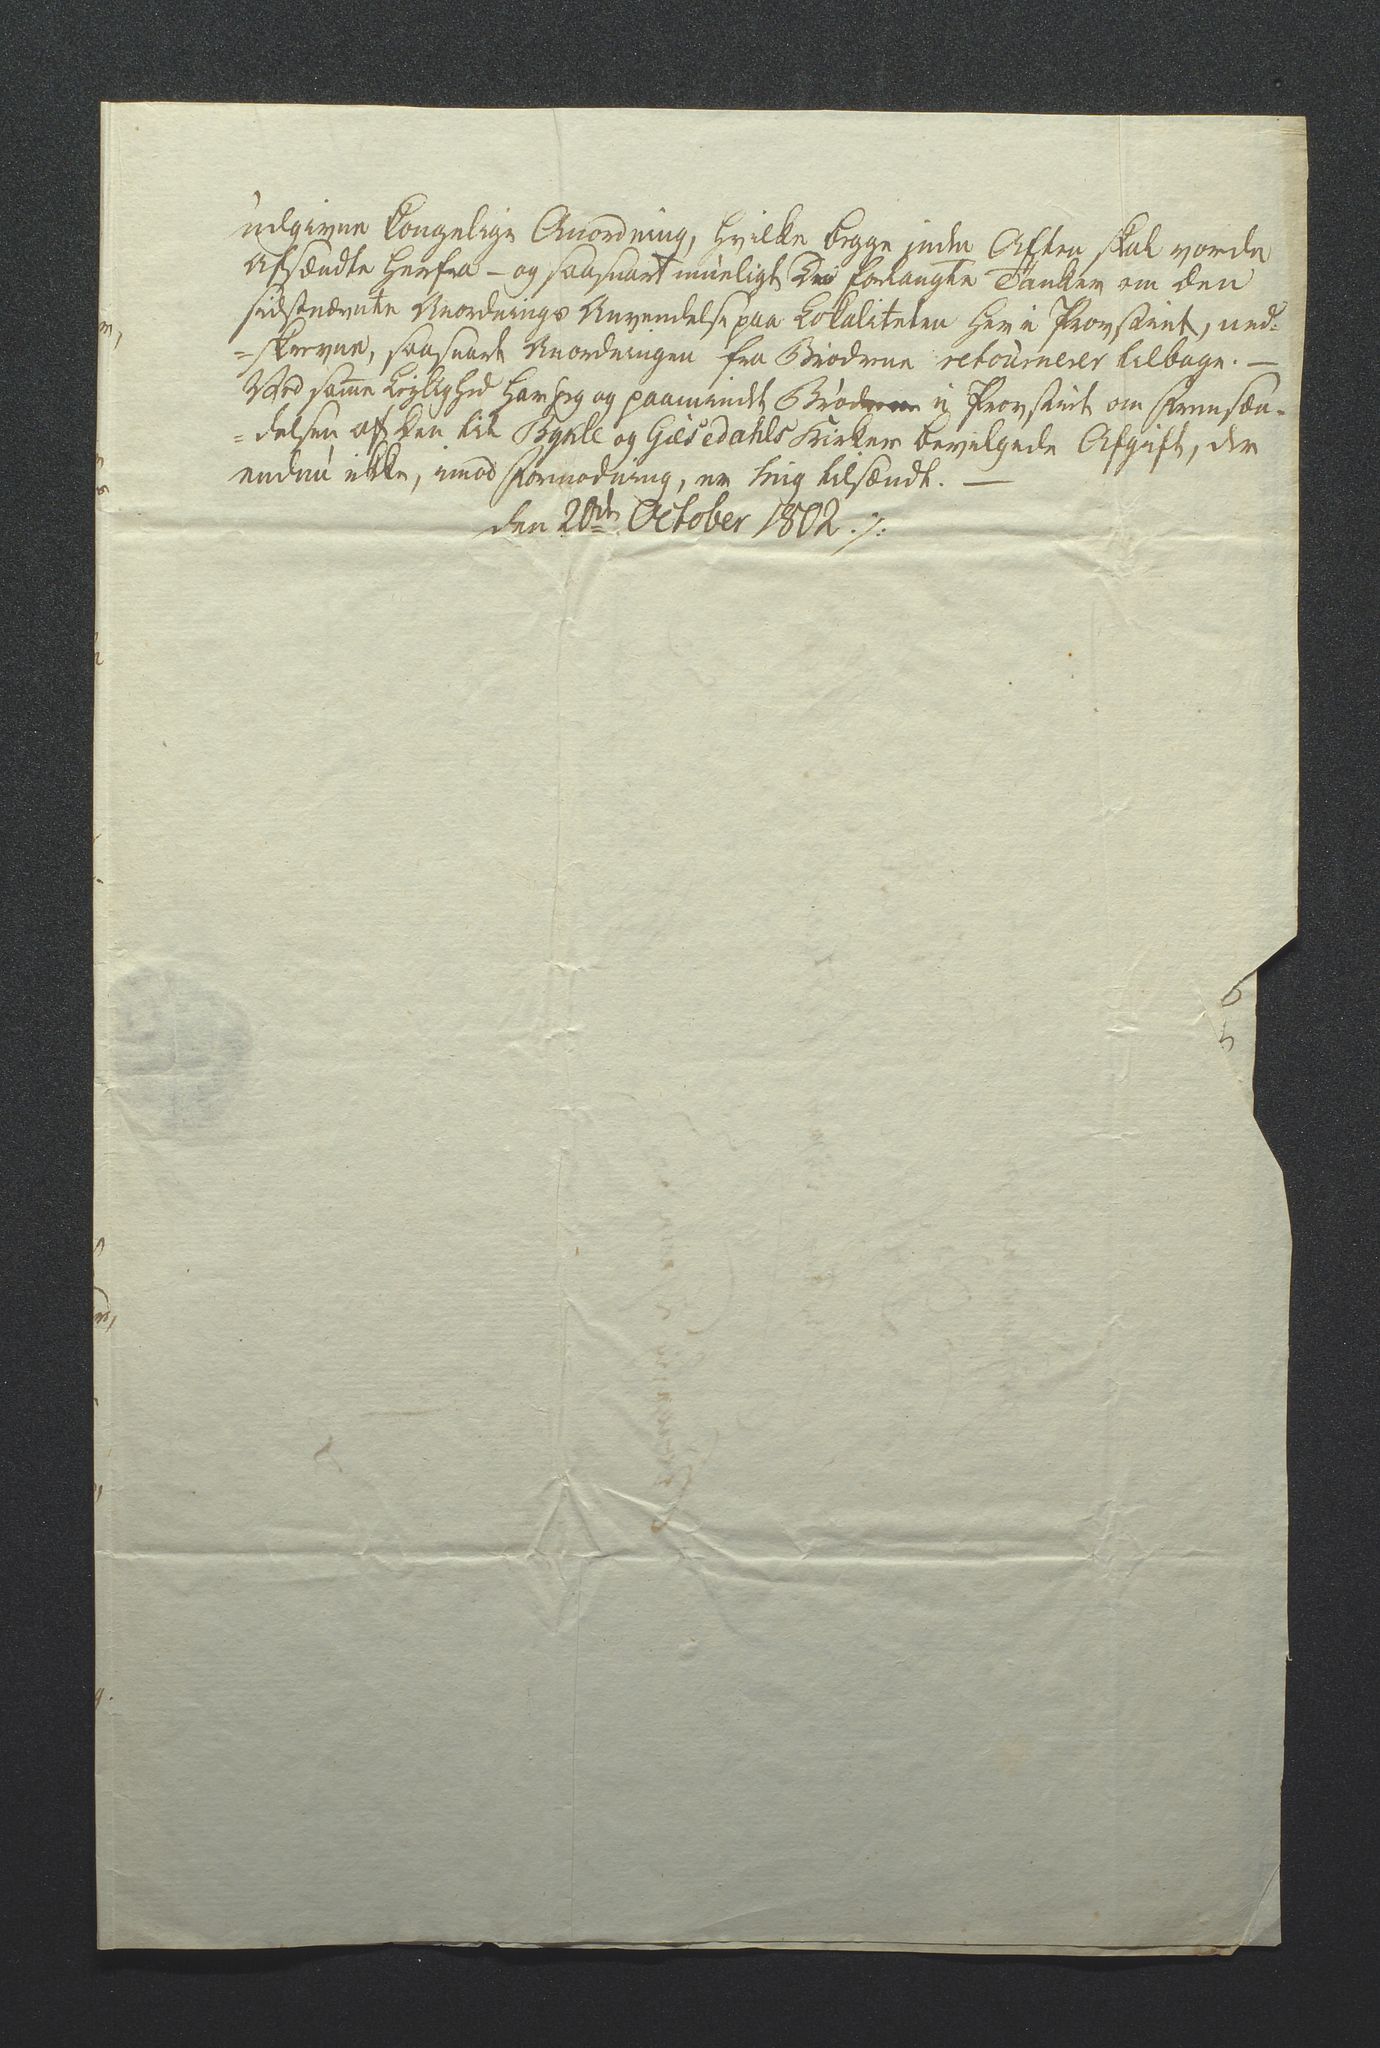 udgivne Kongelige Anordning, hvilke begge inden Aften skal vorde
afsændte herfra – og saasnart mueligt de forlangte Tanker om den
sidstnævnte Anordnings Anvendelse paa Lokaliteten her i Provstiet, ned-
=skrevne, saasnart Anordningen fra Brødrene retournerer tilbage. —
Ved samme Leylighed har jeg og paamindt Brødrene i Provstiet om Fremsæn-
=delsen af den til Bykle og Giæsedahls Kirker bevilgede Afgift, der
endnu ikke, imod Formodning, er mig tilsændt. —
den 20de October 1802 ./.